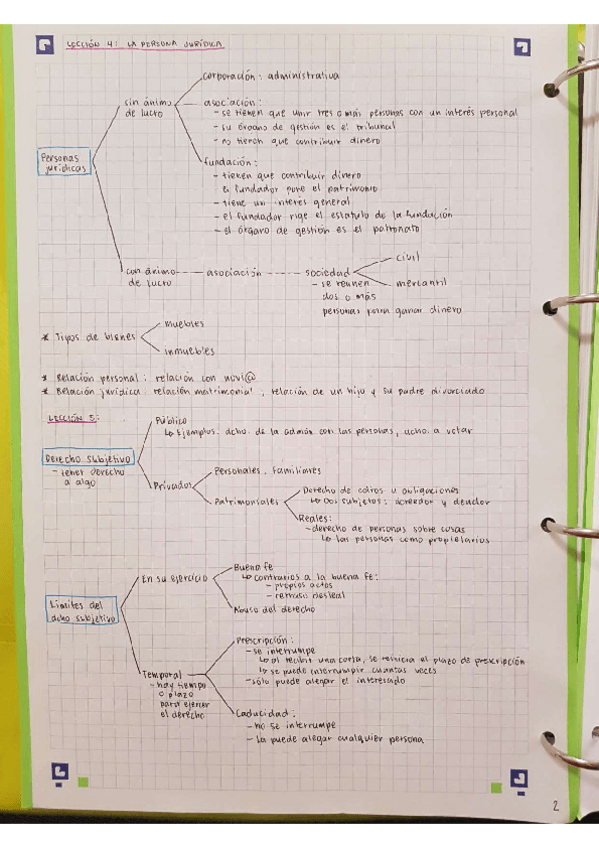 LECCIÓN 4: LA PERSONA JURÍDICA
Personas jurídicas
sin ánimo de lucro
corporación: administrativa
asociación:
- se tienen que unir tres o más personas con un interés personal
- su órgano de gestión es el tribunal
- no tienen que contribuir dinero
fundación:
- tienen que contribuir dinero
↳ fundador pone el patrimonio
- tiene un interés general
- el fundador rige el estatuto de la fundación
- el órgano de gestión es el patronato
con ánimo de lucro
asociación
sociedad
- se reunen
dos o más
personas para ganar dinero
civil
mercantil
* Tipos de bienes
muebles
inmuebles
* Relación personal: relación con novi@
* Relación jurídica: relación matrimonial, relación de un hijo y su padre divorciado
LECCIÓN 5:
Derecho subjetivo
- tener derecho
a algo
Público
↳ Ejemplos: dcho. de la admón con las personas, dcho. a votar
Privados
Personales, familiares
Patrimoniales
Derecho de cobros u obligaciones
↳ Dos sujetos: acreedor y deudor
Reales:
- derecho de personas sobre cosas
↳ las personas como propietarios
Límites del
dcho subjetivo
En su ejercicio
Buena fe
↳ contrarios a la buena fe:
- propios actos
- retraso desleal
Abuso del derecho
Temporal
- hay tiempo
o plazo
para ejercer
el derecho
Prescripción:
- se interrumpe
↳ al recibir una carta, se reinicia el plazo de prescripción
↳ se puede interrumpir cuantas veces
- sólo puede alegar el interesado
Caducidad:
- no se interrumpe
- La puede alegar cualquier persona
2